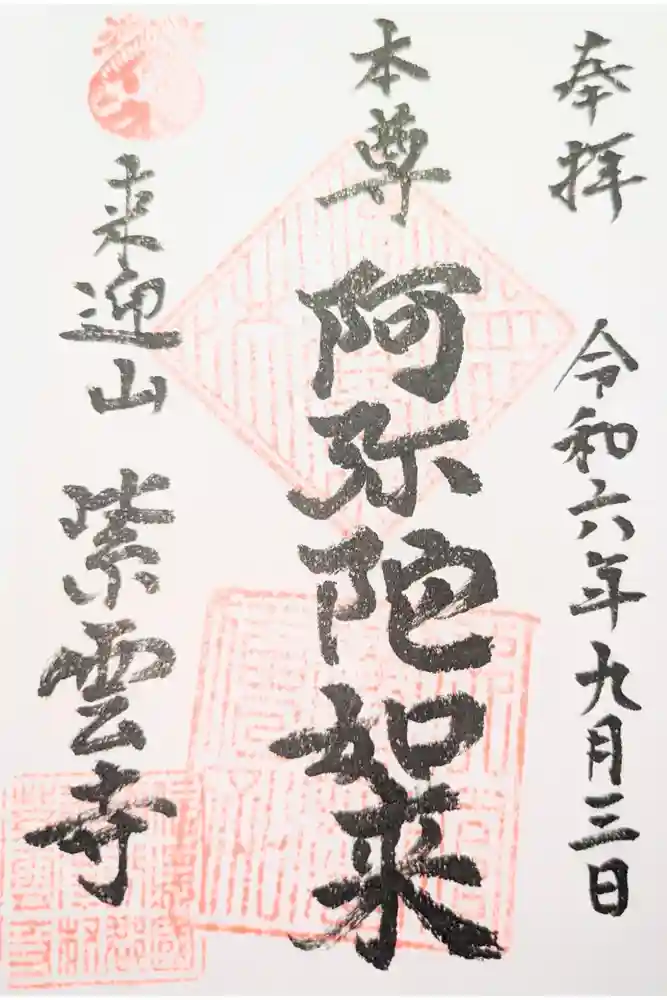 奉拝 令和六年九月三日
本尊 阿弥陀如来
来迎山 紫雲寺